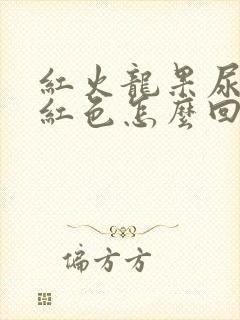 紅火龍果尿
紅色怎麼回
偏方方